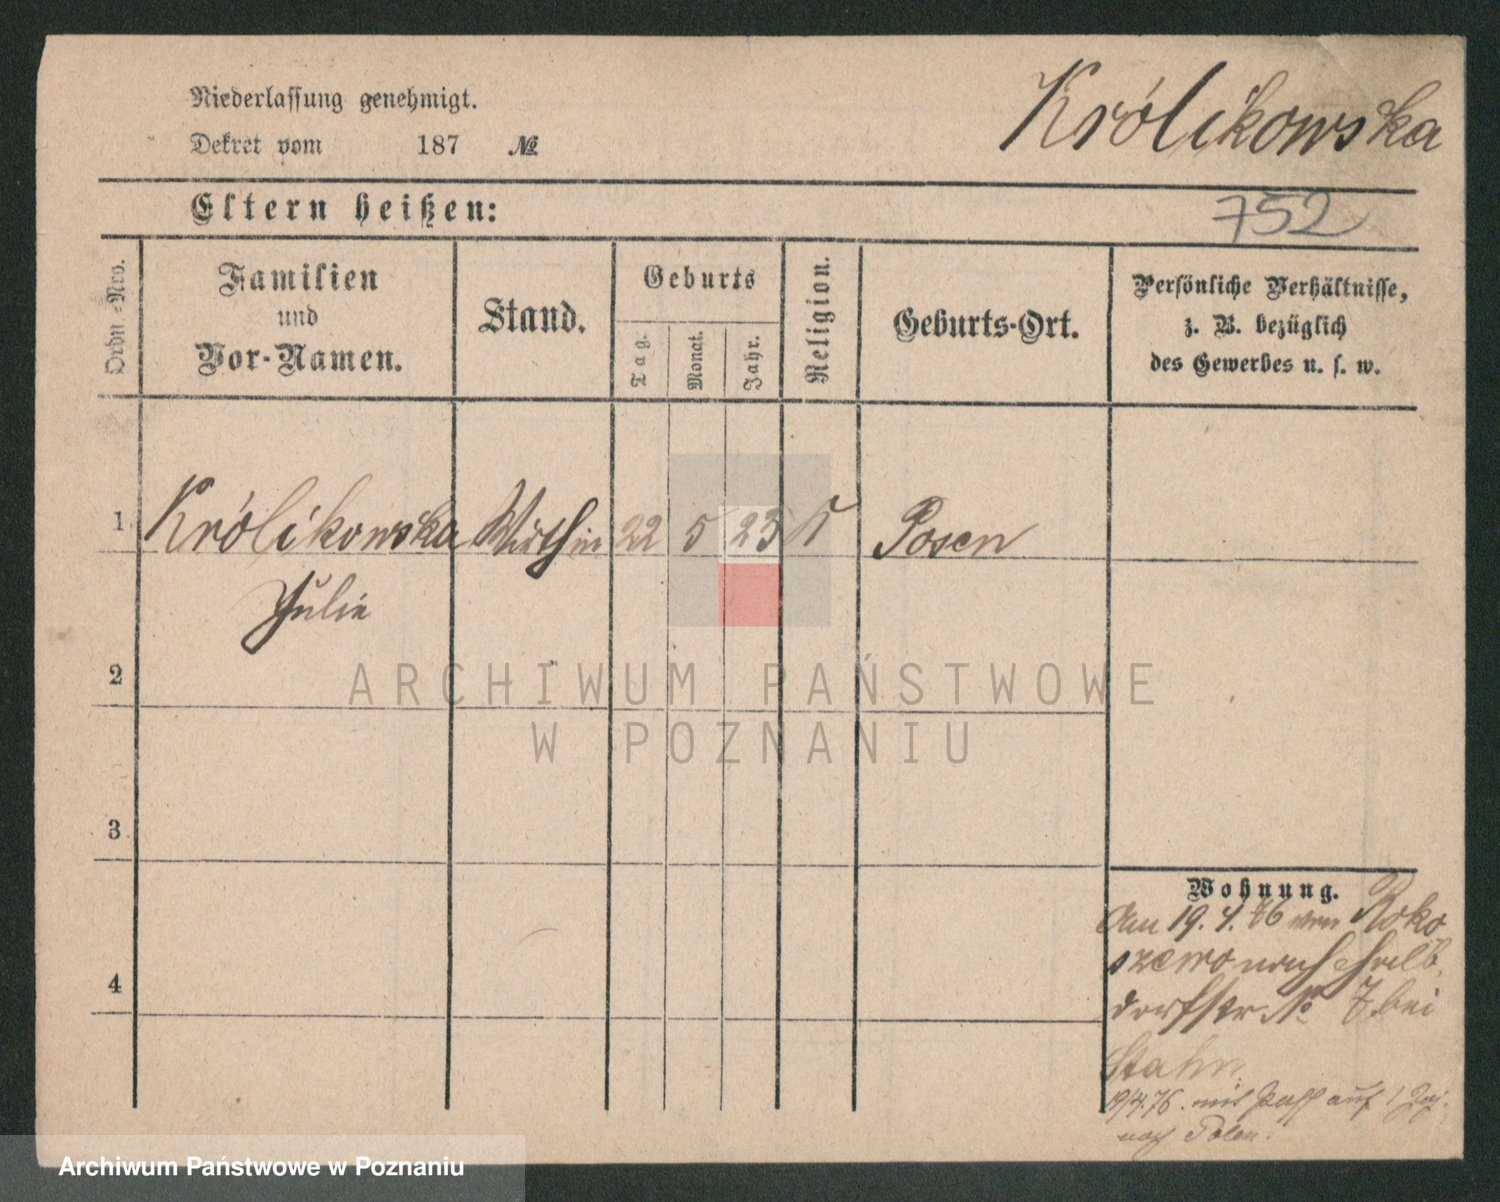 Niederlassung genehmigt.
Dekret vom 187 №
Królikowska
Eltern heißen:
752
Ordn.-Nro.
Familien
und
Vor-Namen.
Stand.
Geburts
Tag.
Monat.
Jahr.
Religion.
Geburts-Ort.
Persönliche Verhältnisse,
z. B. bezüglich
des Gewerbes u. s. w.
1 Królikowska Wirthin 22 5 23 K Posen
Julie
2
3
4
Wohnung.
Am 19. 4. 76 von Roko
szewo nach Halb
dorfstr № 7 bei
Stahn
19/4.76. mit Paß auf 1
nach Polen.
ARCHIWUM PAŃSTWOWE
W POZNANIU
Archiwum Państwowe w Poznaniu